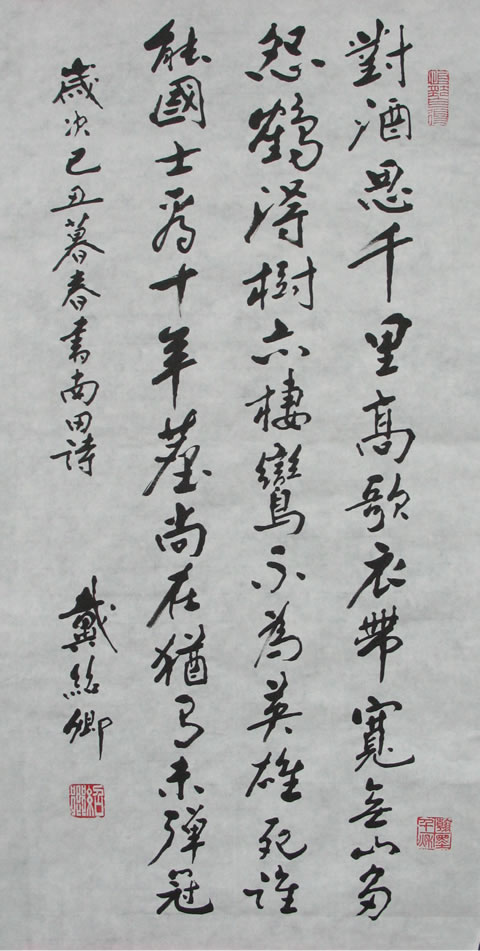 對酒思千里高歌衣帶寬無山留
怨鶴得樹亦棲鸞不為英雄死誰
能國士看十年臺尚在猶有未彈冠
歲次己丑暮春書南田詩
戴紹卿